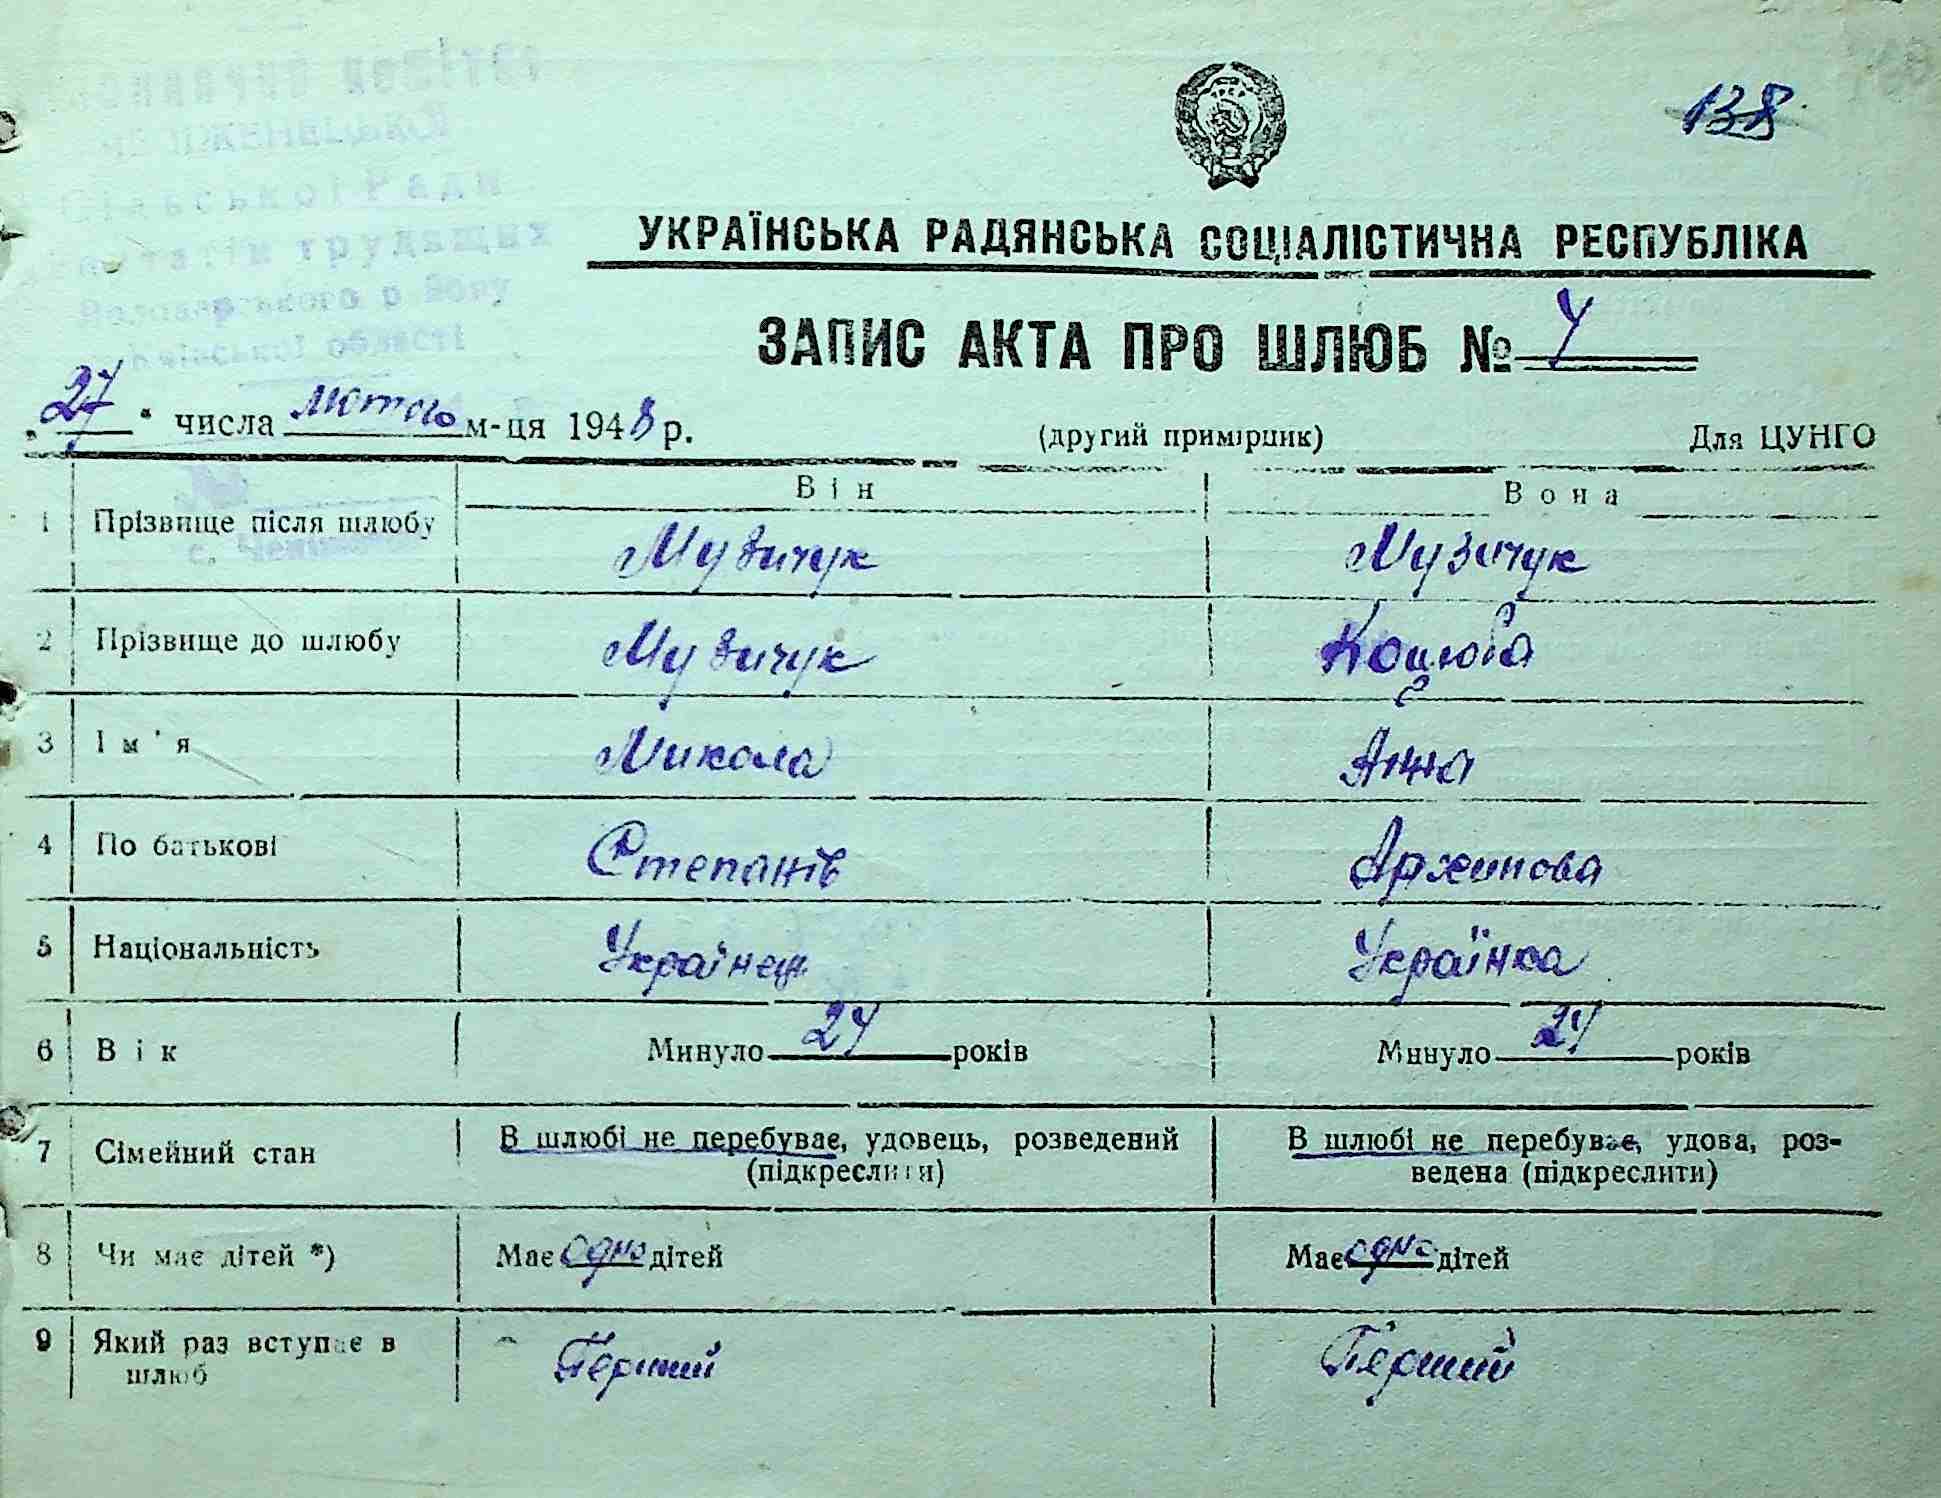 138
УКРАЇНСЬКА РАДЯНСЬКА СОЦІАЛІСТИЧНА РЕСПУБЛІКА
ЗАПИС АКТА ПРО ШЛЮБ № 4
комітет
Сільської Ради
трудящих
Київської області
„27“ числа лютого м-ця 1948 р. (другий примірник) Для ЦУНГО
Він Вона
1 Прізвище після шлюбу Музичук Музичук
2 Прізвище до шлюбу Музичук Коцюба
3 Ім'я Микола Анна
4 По батькові Степанів Архипова
5 Національність Українець Українка
6 Вік Минуло 24 років Минуло 24 років
7 Сімейний стан В шлюбі не перебуває, удовець, розведений В шлюбі не перебуває, удова, роз-
(підкреслити) ведена (підкреслити)
8 Чи має дітей *) Має одно дітей Має одно дітей
9 Який раз вступає в Перший Перший
шлюб